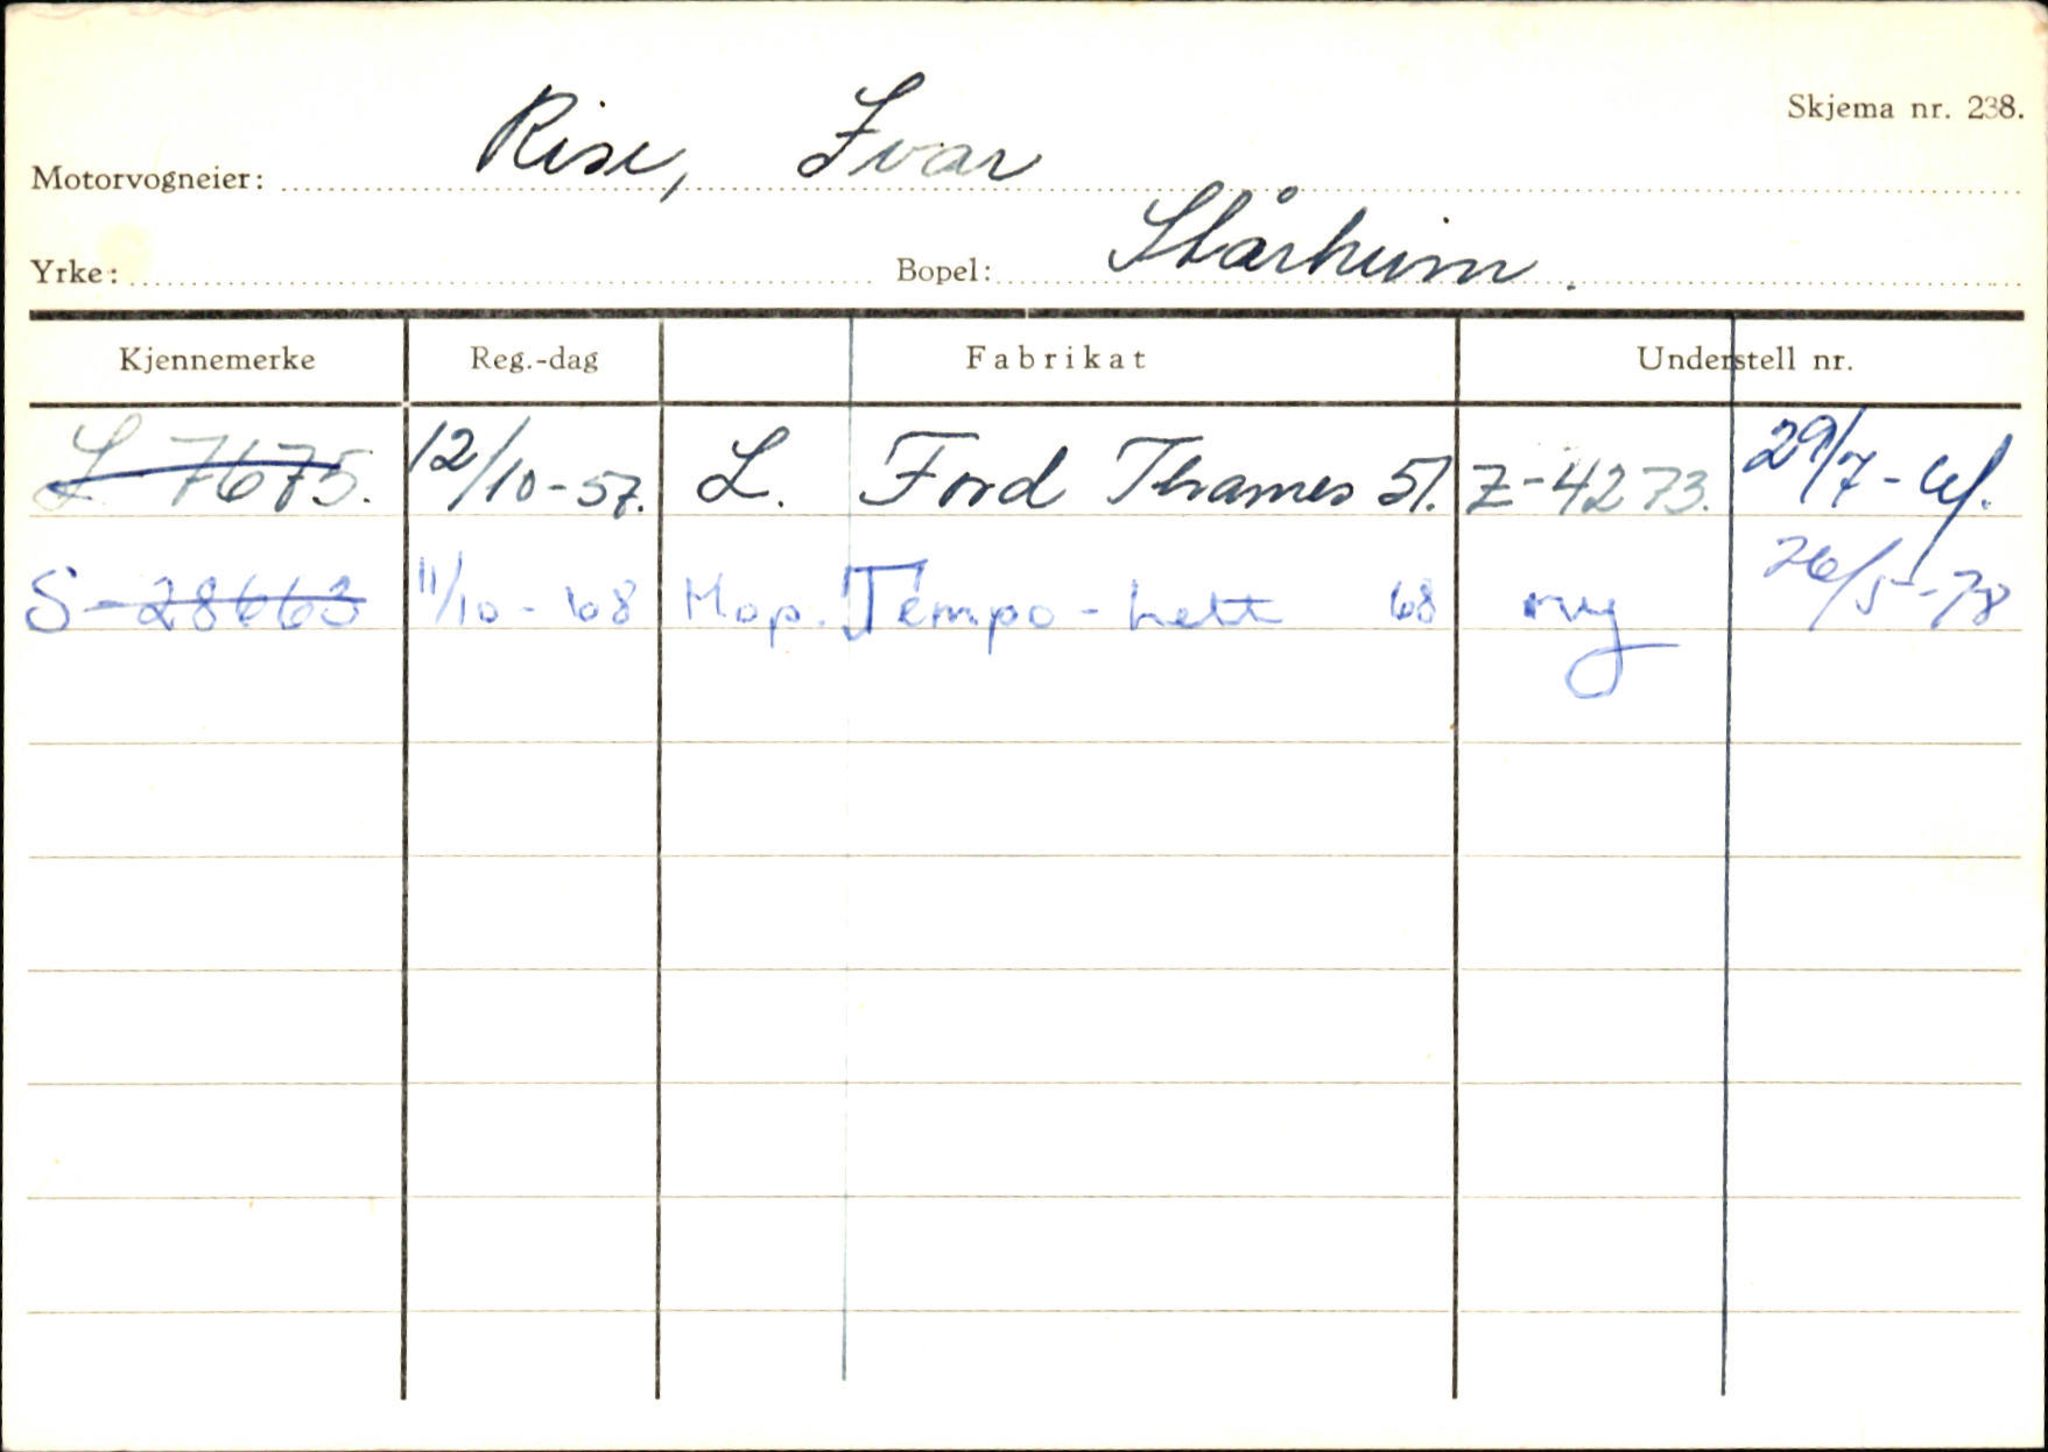 Skjema nr. 238.
Motorvogneier: Rise, Ivar
Yrke: Bopel: Stårheim.
Kjennemerke Reg.-dag Fabrikat Understell nr.
7675. 12/10-57. L. Ford Thames 51. Z-4273. 29/7-
S-28663 11/10-68 Mop. Tempo-lett 68 ny 26/5-78